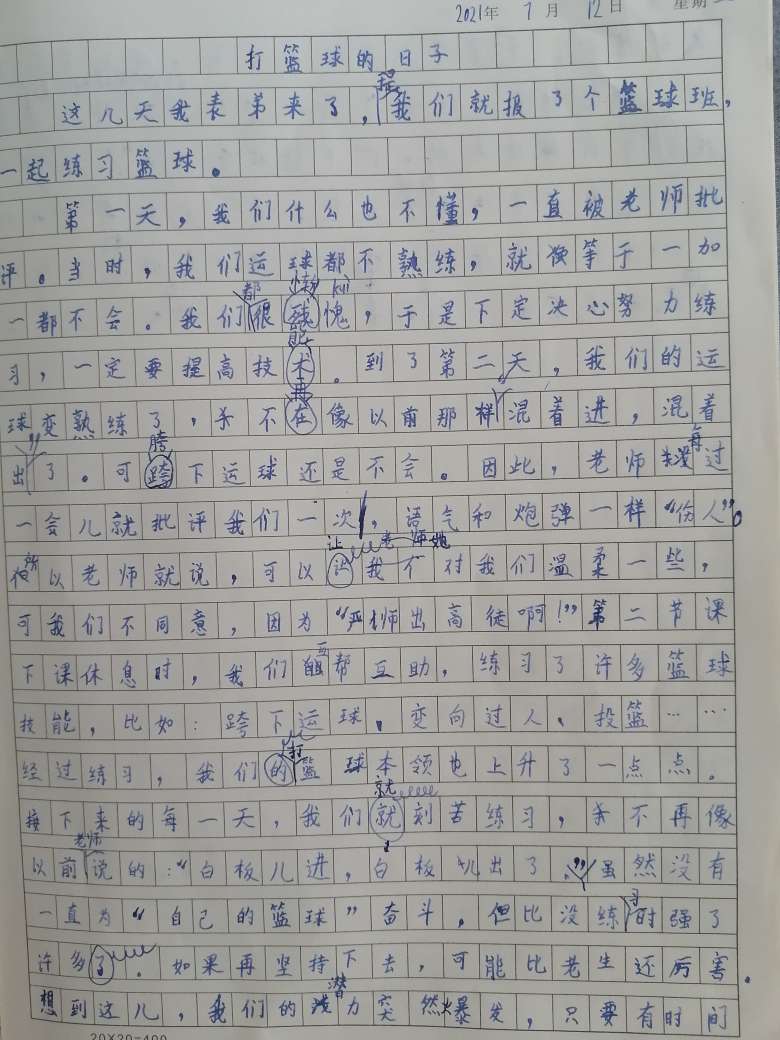 2021年 7月 12日 星期
打篮球的日子
这几天我表弟来了，我们就报了个篮球班，
一起练习篮球。
第一天，我们什么也不懂，一直被老师批
评。当时，我们运球都不熟练，就像等于一加
都 kuì
一都不会。我们很愧，于是下定决心努力练
能
习，一定要提高技术。到了第二天，我们的运
再
球变熟练了，不在像以前那样“混着进，混着
胯
出”了。可跨下运球还是不会。因此，老师每过
一会儿就批评我们一次，语气和炮弹一样“伤人”。
让 老师她
所以老师就说，可以让我对我们温柔一些，
可我们不同意，因为“严师出高徒啊！”第二节课
互
下课休息时，我们互帮互助，练习了许多篮球
技能，比如：跨下运球、变向过人、投篮……
打
经过练习，我们的篮球本领也上升了一点点。
就
接下来的每一天，我们就刻苦练习，不再像
老师
以前说的：“白板儿进，白板儿出了”，虽然没有
习
一直为“自己的篮球”奋斗，但比没练时强了
许多了。如果再坚持下去，可能比老生还厉害。
潜
想到这儿，我们的力突然爆发，只要有时间
20×20=400